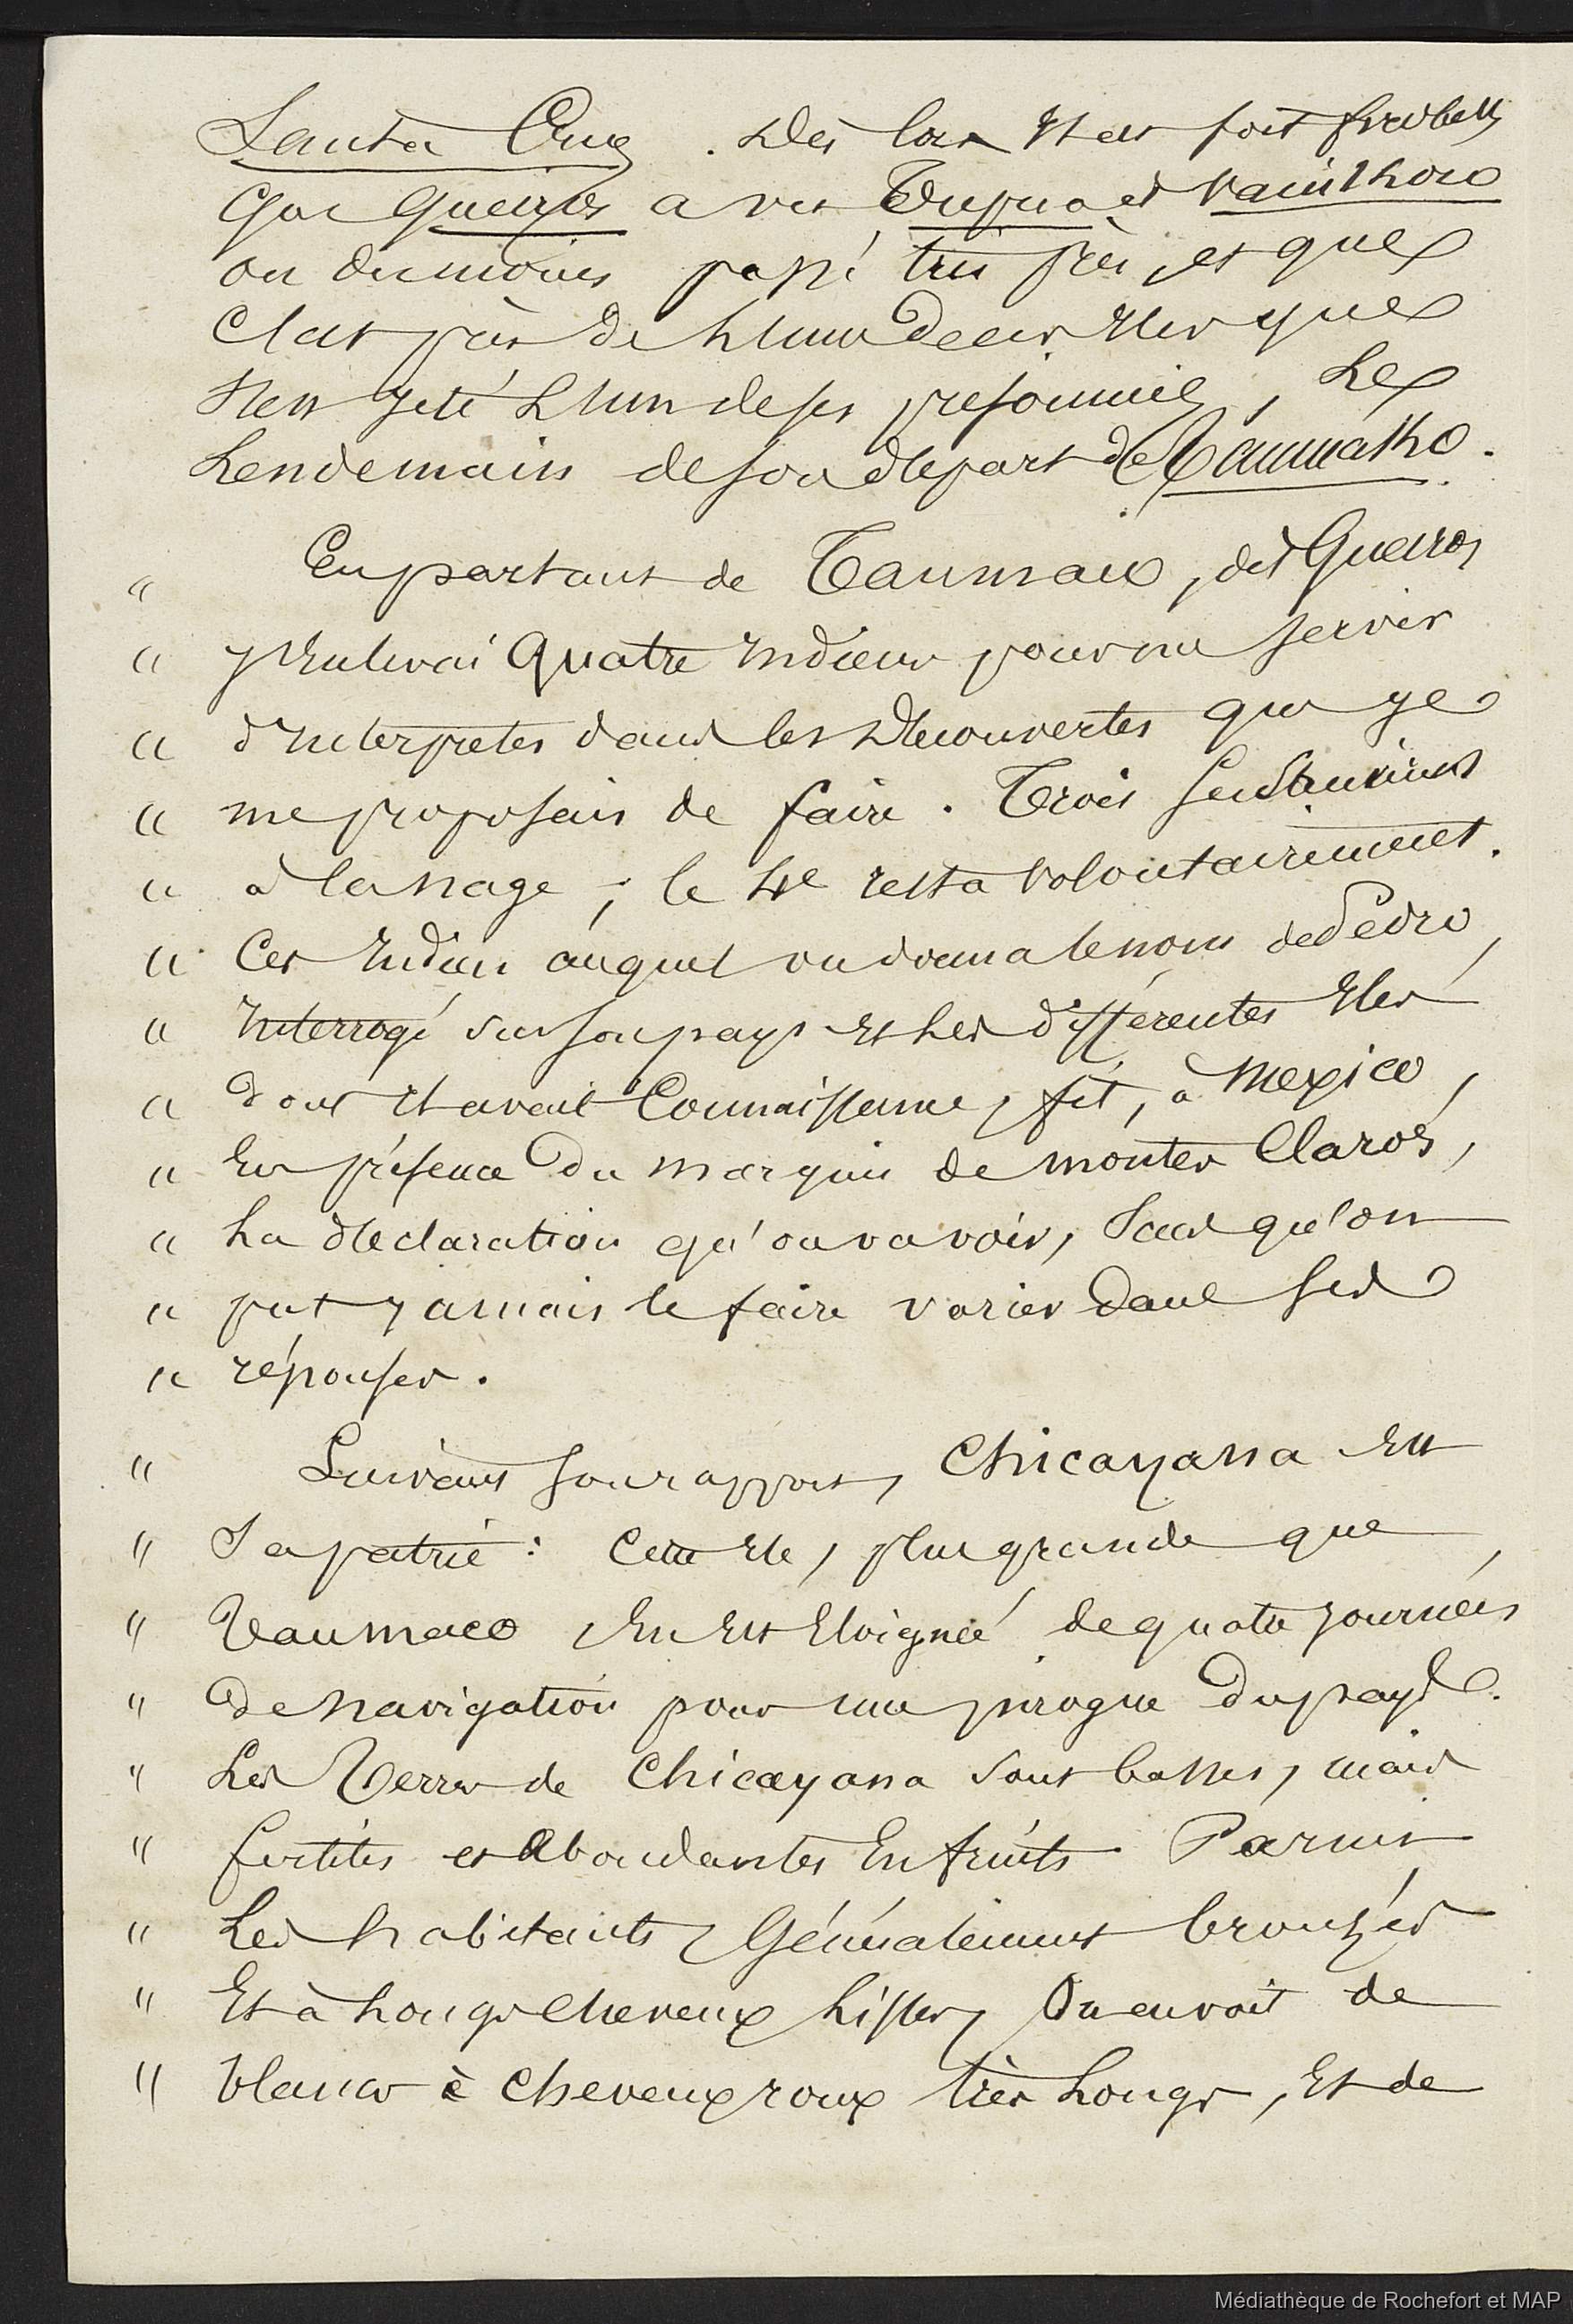 Santa Cruz. Dès lors Il est fort probable
que Queiros a vu Tupua et Vanikoro
ou du moins passé très près, et que
C'est près de L'une de ces Iles que
S'est jeté L'un de ses prisonniers, Le
Lendemain de son départ de Taumako.
" En partant de Taumaco, dit Queiros,
" J'Enlevai Quatre Indiens pour me servir
" d'Interpretes dans les Découvertes que Je
" me proposais de faire. Trois se sauvèrent
" à la nage ; le 4e resta volontairement.
" Cet Indien auquel on donna le nom de Pedro,
" Interrogé sur son pays Et Les différentes Iles
" dont Il avait Connaissance, fit, à Mexico,
" En présence Du Marquis de Montes Claros,
" La déclaration qu'on va voir, Sans qu'on
" put Jamais le faire varier dans Ses
" réponses.
" Suivant Son rapport, Chicayana Est
" Sa patrie : Cette Ile, plus grande que
" Taumaco En Est Eloignée de quatre Journées
" De Navigation pour une pirogue Du pays.
" Les Terres de Chicayana sont basses, mais
" fertiles et Abondantes En fruits. Parmi
" Les habitants, Généralement bronzés
" Et à Longs Cheveux Lisses, On en voit de
" blancs à Cheveux roux très Longs, Et de
Médiathèque de Rochefort et MAP